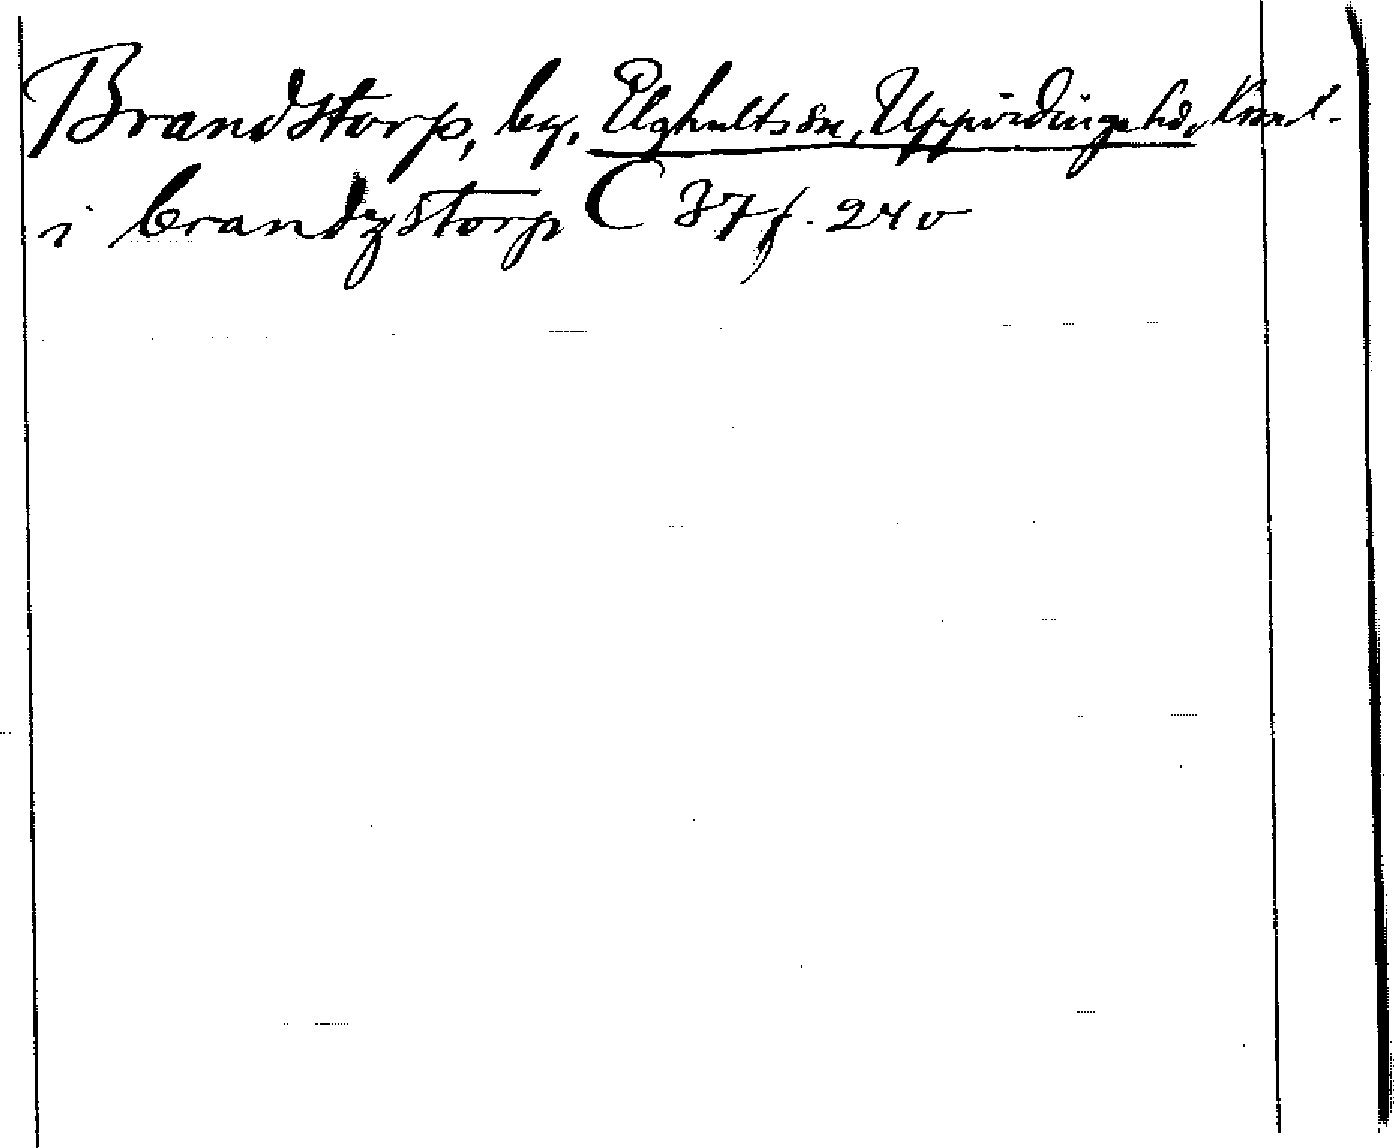 Brandstorp, by, Elghults sn, Uppvidinge hd, Kronl.
i brandzstorp C 37 f. 24 v